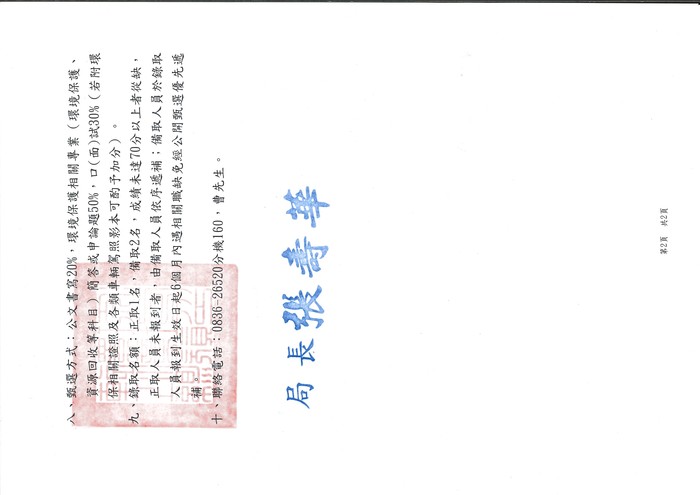 八、甄選方式：公文書寫20%，環境保護相關專業（環境保護、
資源回收等科目）簡答或申論題50%，口(面)試30%（若附環
保相關證照及各類車輛駕照影本可酌予加分）。
九、錄取名額：正取1名，備取2名，成績未達70分以上者從缺，
正取人員未報到者，由備取人員依序遞補；備取人員於錄取
人員報到生效日起6個月內遇相關職缺免經公開甄選優先遞
補。
十、聯絡電話：0836-26520分機160，曹先生。
局長張壽華
第2頁 共2頁